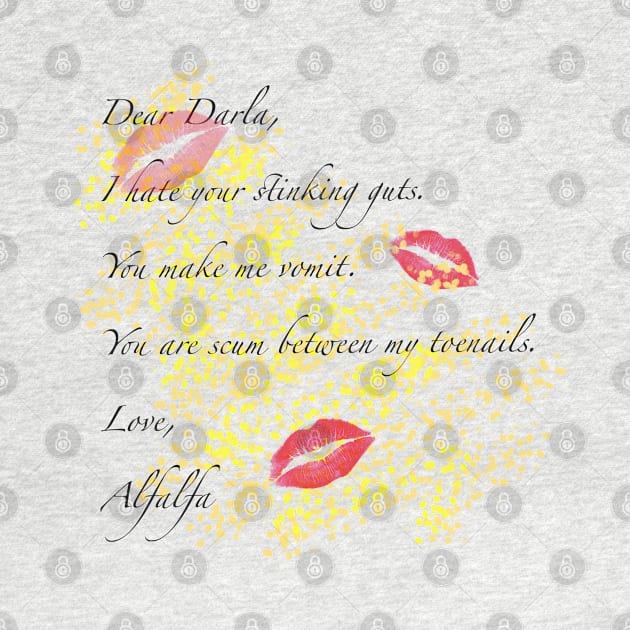 Dear Darla,
I hate your stinking guts.
You make me vomit.
You are scum between my toenails.
Love,
Alfalfa